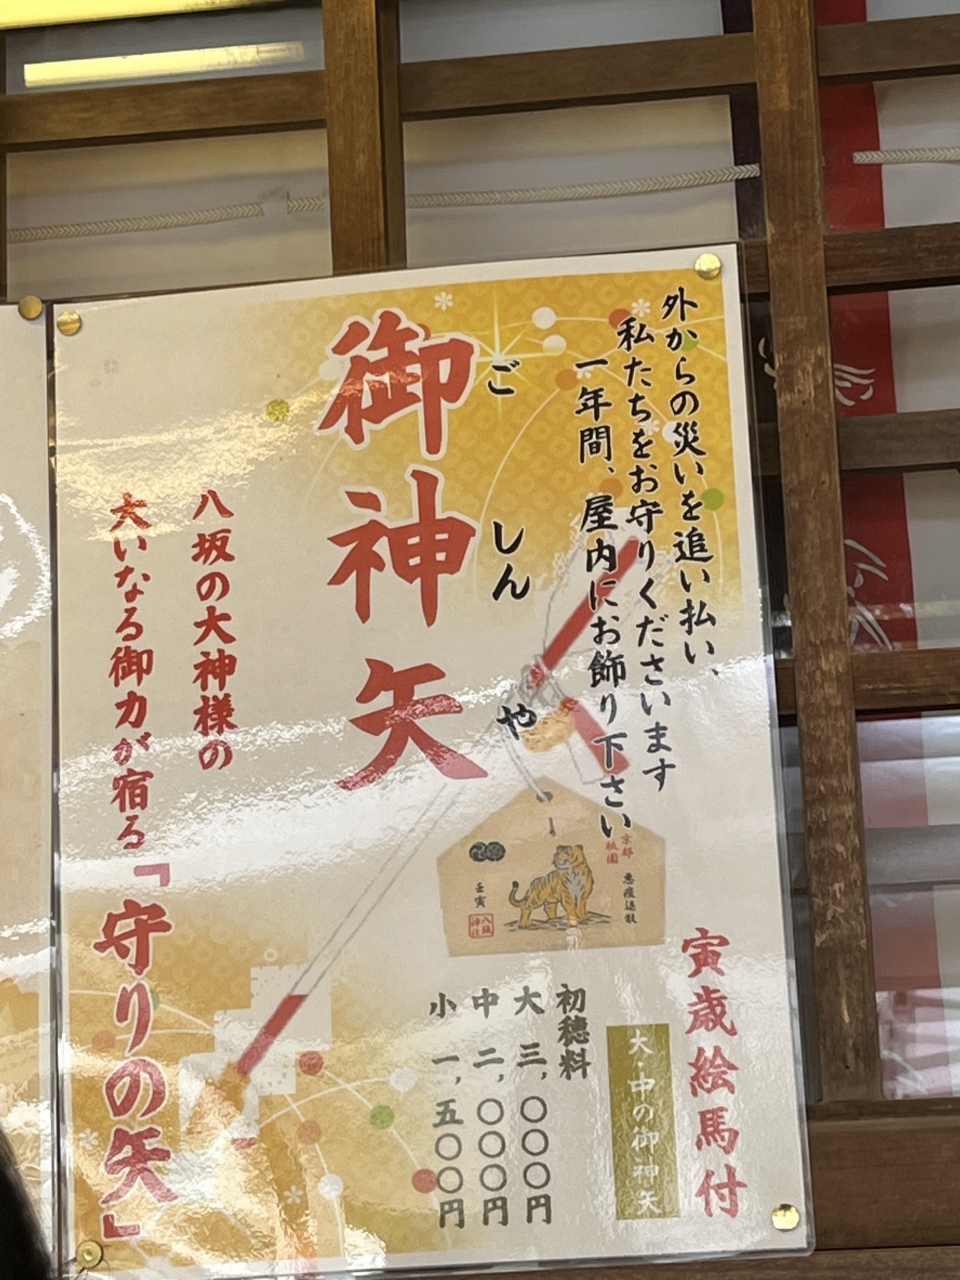 外からの災いを追い払い、
私たちをお守りくださいます
一年間、屋内にお飾り下さい
ごしんや
御神矢
八坂の大神様の
大いなる御力が宿る
「守りの矢」
京都
祇園
悪疫退散
壬寅
八坂
神社
寅歳絵馬付
大・中の御神矢
初穂料
大 三、〇〇〇円
中 二、〇〇〇円
小 一、五〇〇円